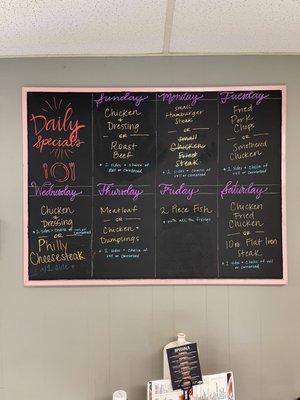 Daily
Specials
Sunday
Chicken
+
Dressing
OR
Roast
Beef
* 2 sides + choice of
roll or cornbread
Monday
small
Hamburger
Steak
OR
small
Chicken
Fried
Steak
* 2 sides + choice of
roll or cornbread
Tuesday
Fried
Pork
Chops
OR
Smothered
Chicken
* 2 sides + choice of
roll or cornbread
Wednesday
Chicken
+
Dressing
* 2 sides + choice of
roll or cornbread
OR
Philly
Cheesesteak
w/ 1 side
Thursday
Meatloaf
OR
Chicken +
Dumplings
* 2 sides + choice of
roll or cornbread
Friday
2 Piece Fish
* with all the fixings
Saturday
Chicken
Fried
Chicken
OR
10 oz Flat Iron
Steak
* 2 sides + choice of roll
or cornbread
SPECIALS